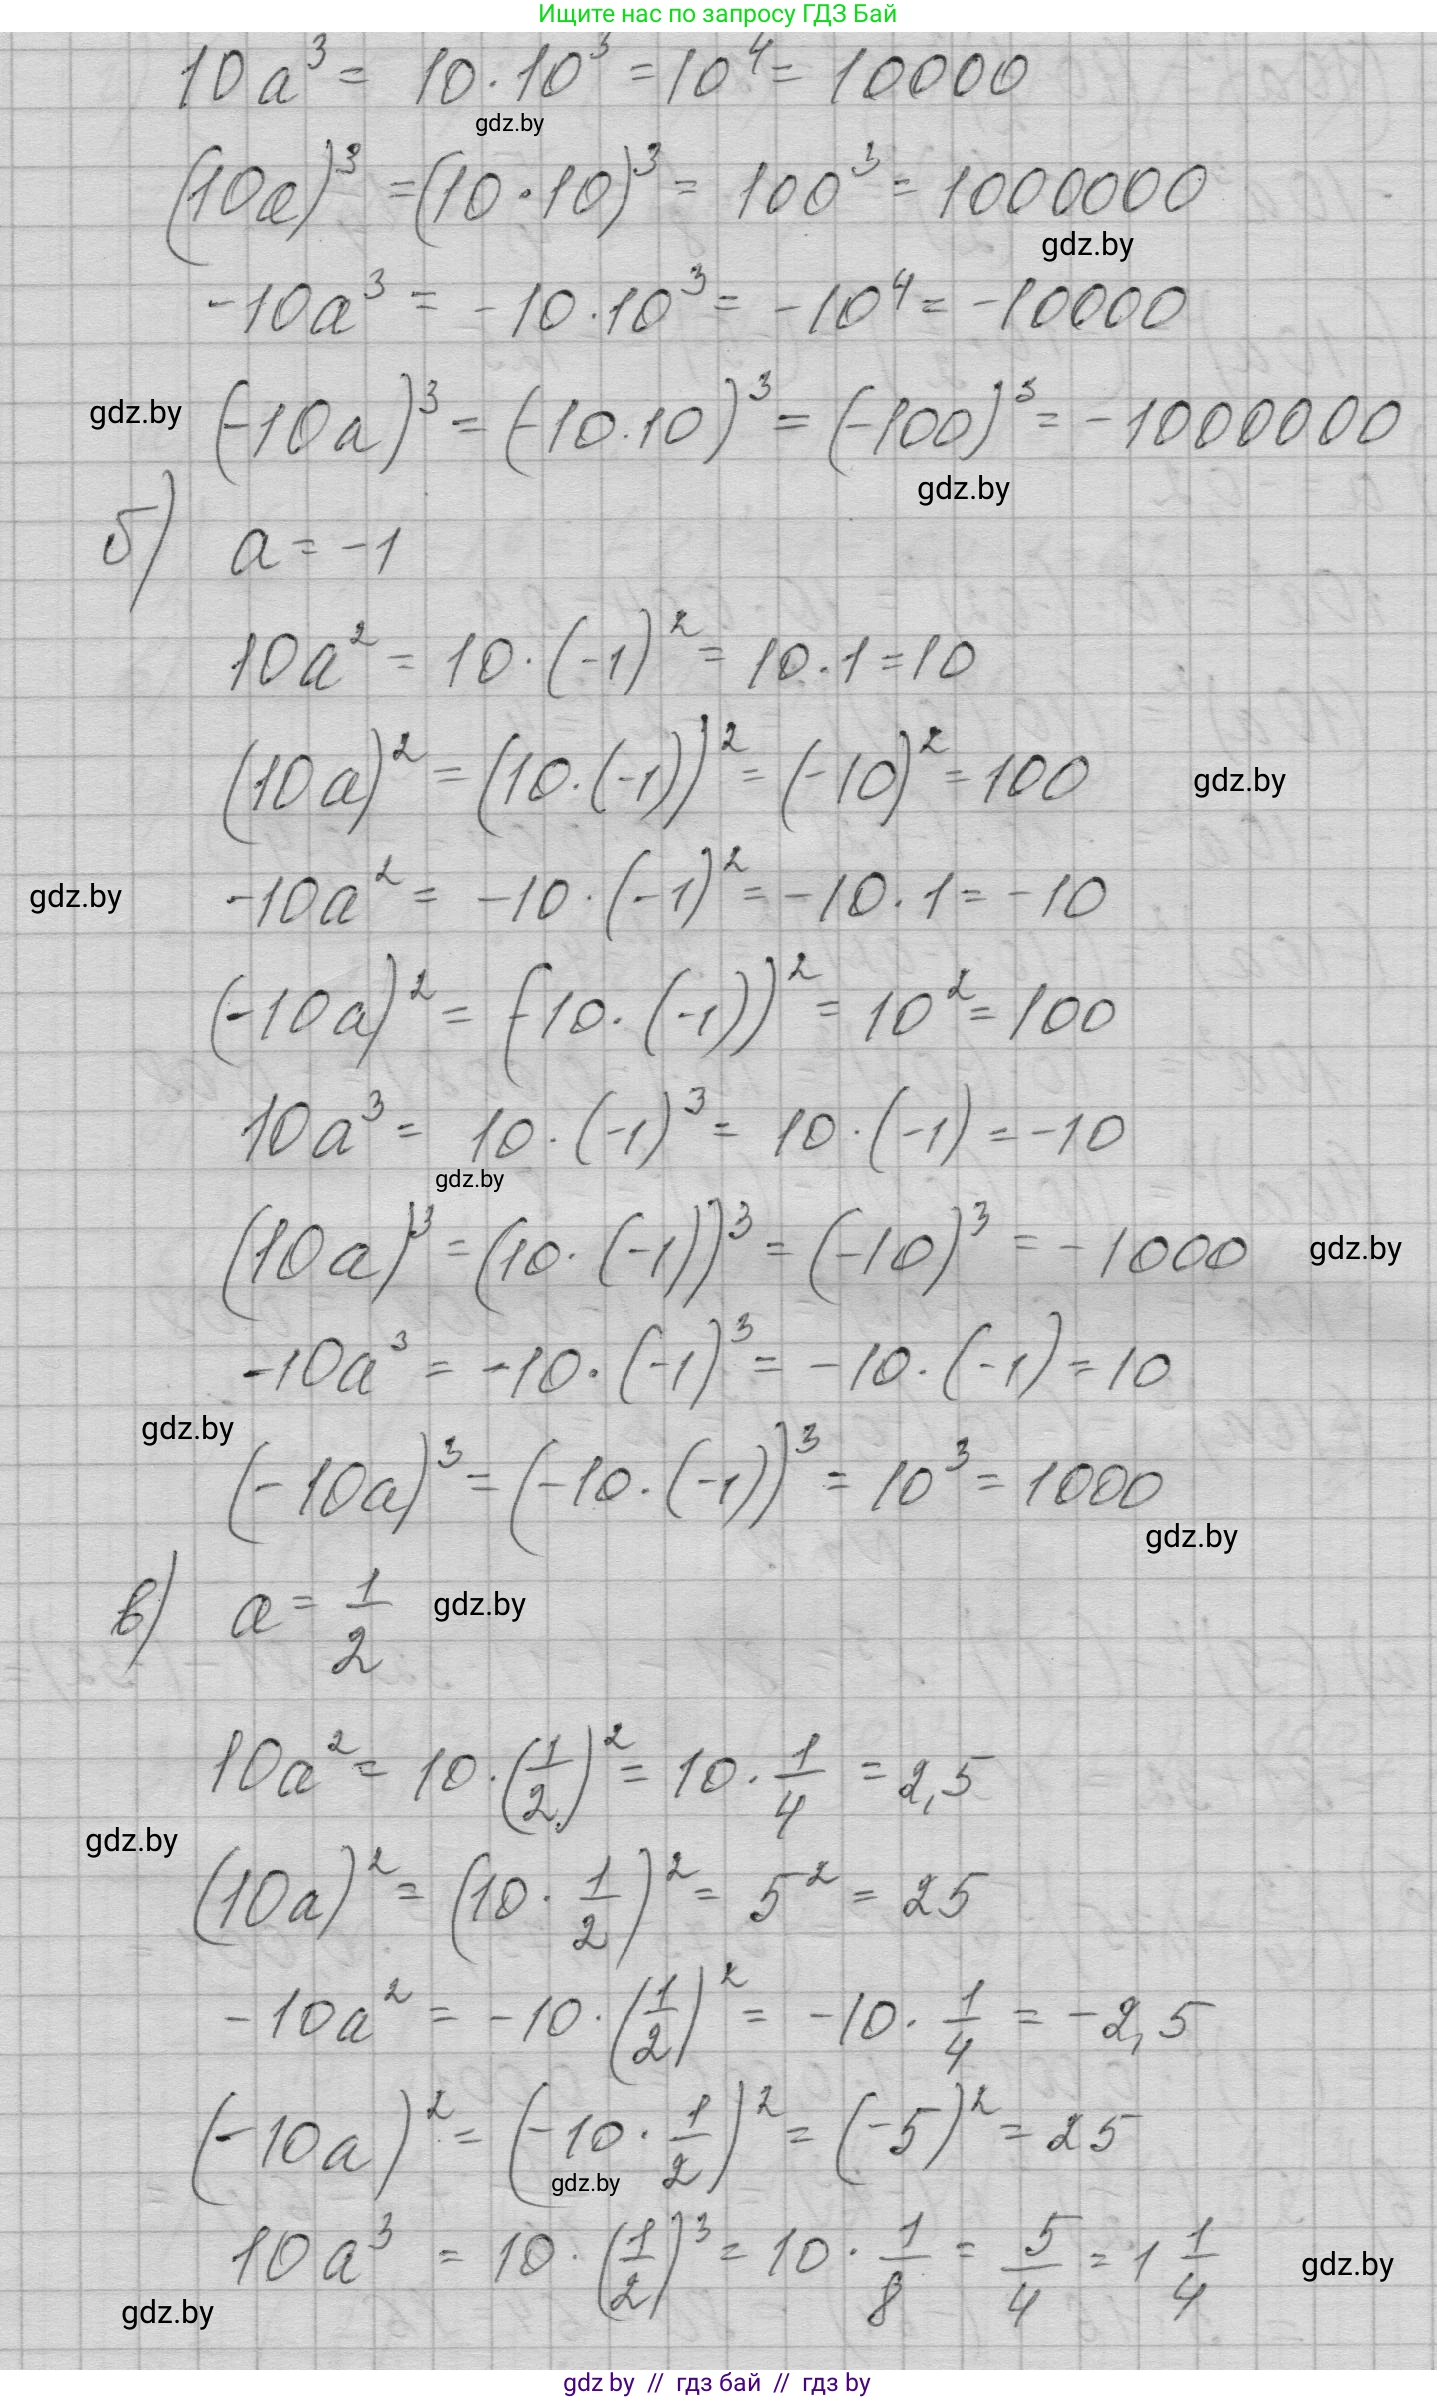 Ищите нас по запросу ГДЗ Бай
10a³ = 10·10³ = 10⁴ = 10000
gdz.by
(10a)³ = (10·10)³ = 100³ = 1000000
gdz.by
-10a³ = -10·10³ = -10⁴ = -10000
gdz.by (-10a)³ = (-10·10)³ = (-100)³ = -1000000
gdz.by
б) a = -1
10a² = 10·(-1)² = 10·1 = 10
(10a)² = (10·(-1))² = (-10)² = 100 gdz.by
gdz.by -10a² = -10·(-1)² = -10·1 = -10
(-10a)² = (-10·(-1))² = 10² = 100
10a³ = 10·(-1)³ = 10·(-1) = -10
gdz.by
(10a)³ = (10·(-1))³ = (-10)³ = -1000 gdz.by
-10a³ = -10·(-1)³ = -10·(-1) = 10
gdz.by
(-10a)³ = (-10·(-1))³ = 10³ = 1000
gdz.by
в) a = 1/2 gdz.by
10a² = 10·(1/2)² = 10·1/4 = 2,5
gdz.by
(10a)² = (10·1/2)² = 5² = 25
-10a² = -10·(1/2)² = -10·1/4 = -2,5
(-10a)² = (-10·1/2)² = (-5)² = 25
gdz.by
10a³ = 10·(1/2)³ = 10·1/8 = 5/4 = 1 1/4 gdz.by
gdz.by
gdz by // гдз бай // гдз by